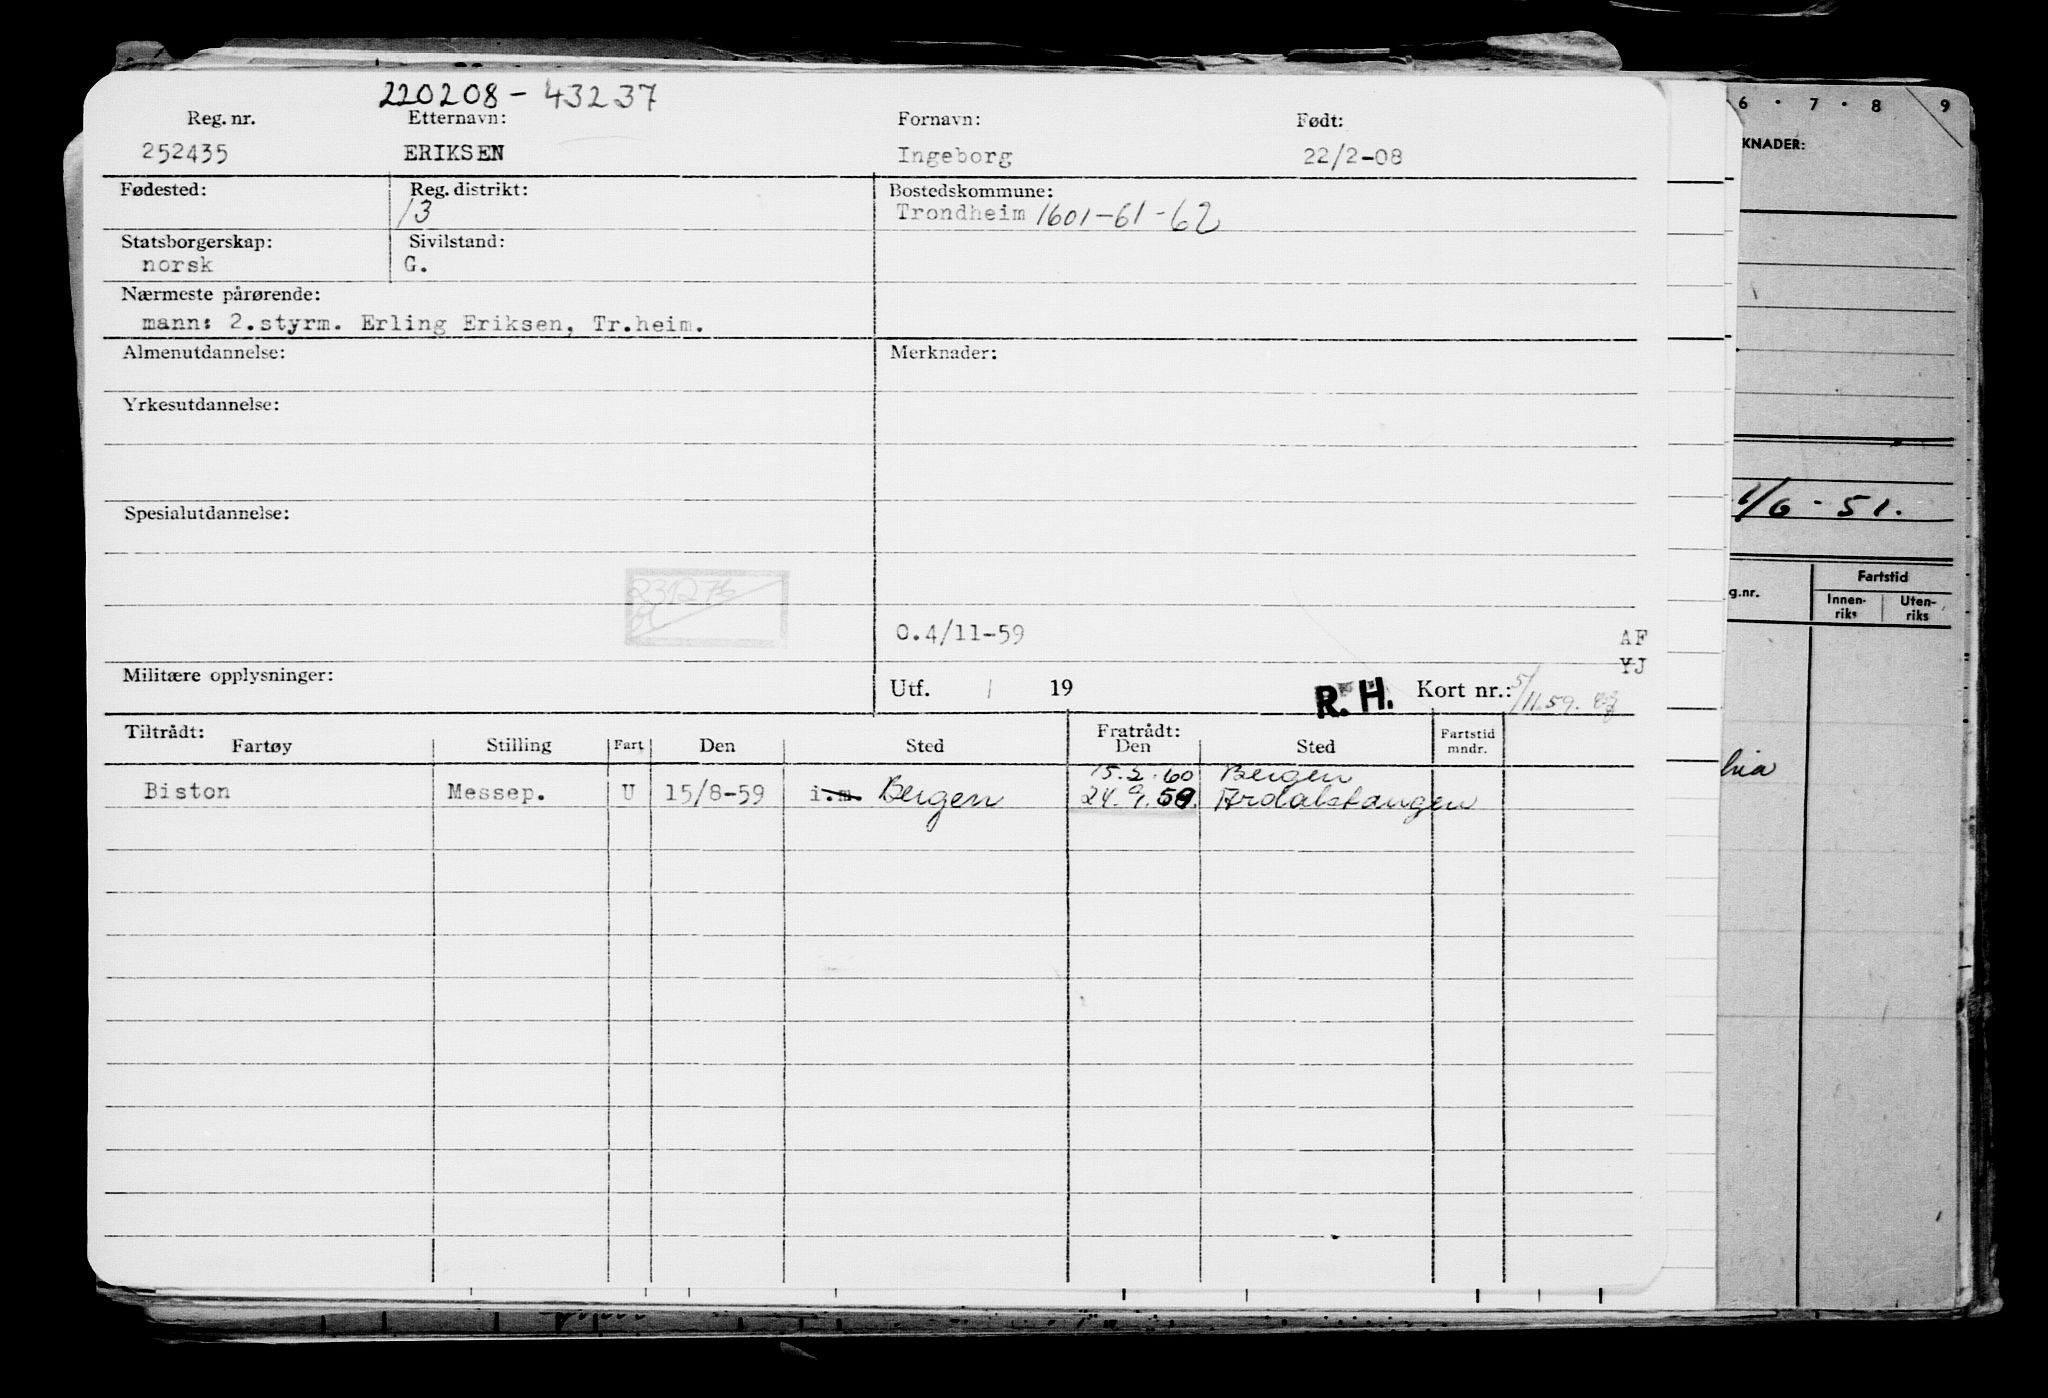 220208 - 43237
Reg. nr. Etternavn: Fornavn: Født:
252435 ERIKSEN Ingeborg 22/2-08
Fødested: Reg. distrikt: Bostedskommune:
13 Trondheim 1601-61-62
Statsborgerskap: Sivilstand:
norsk G.
Nærmeste pårørende:
mann: 2.styrm. Erling Eriksen, Tr.heim.
Almenutdannelse: Merknader:
Yrkesutdannelse:
Spesialutdannelse:
231276
O.4/11-59 AF
YJ
Militære opplysninger:
Utf. / 19 R.H. Kort nr.: 5/11.59.
Tiltrådt: Fratrådt:
Fartøy Stilling Fart Den Sted Den Sted Fartstid mndr.
15.2.60 Bergen
Biston Messep. U 15/8-59 i.m. Bergen 24.9.59. Årdalstangen
6 · 7 · 8 9
KNADER:
1/6 - 51.
g.nr. Fartstid
Innen-riks Uten-riks